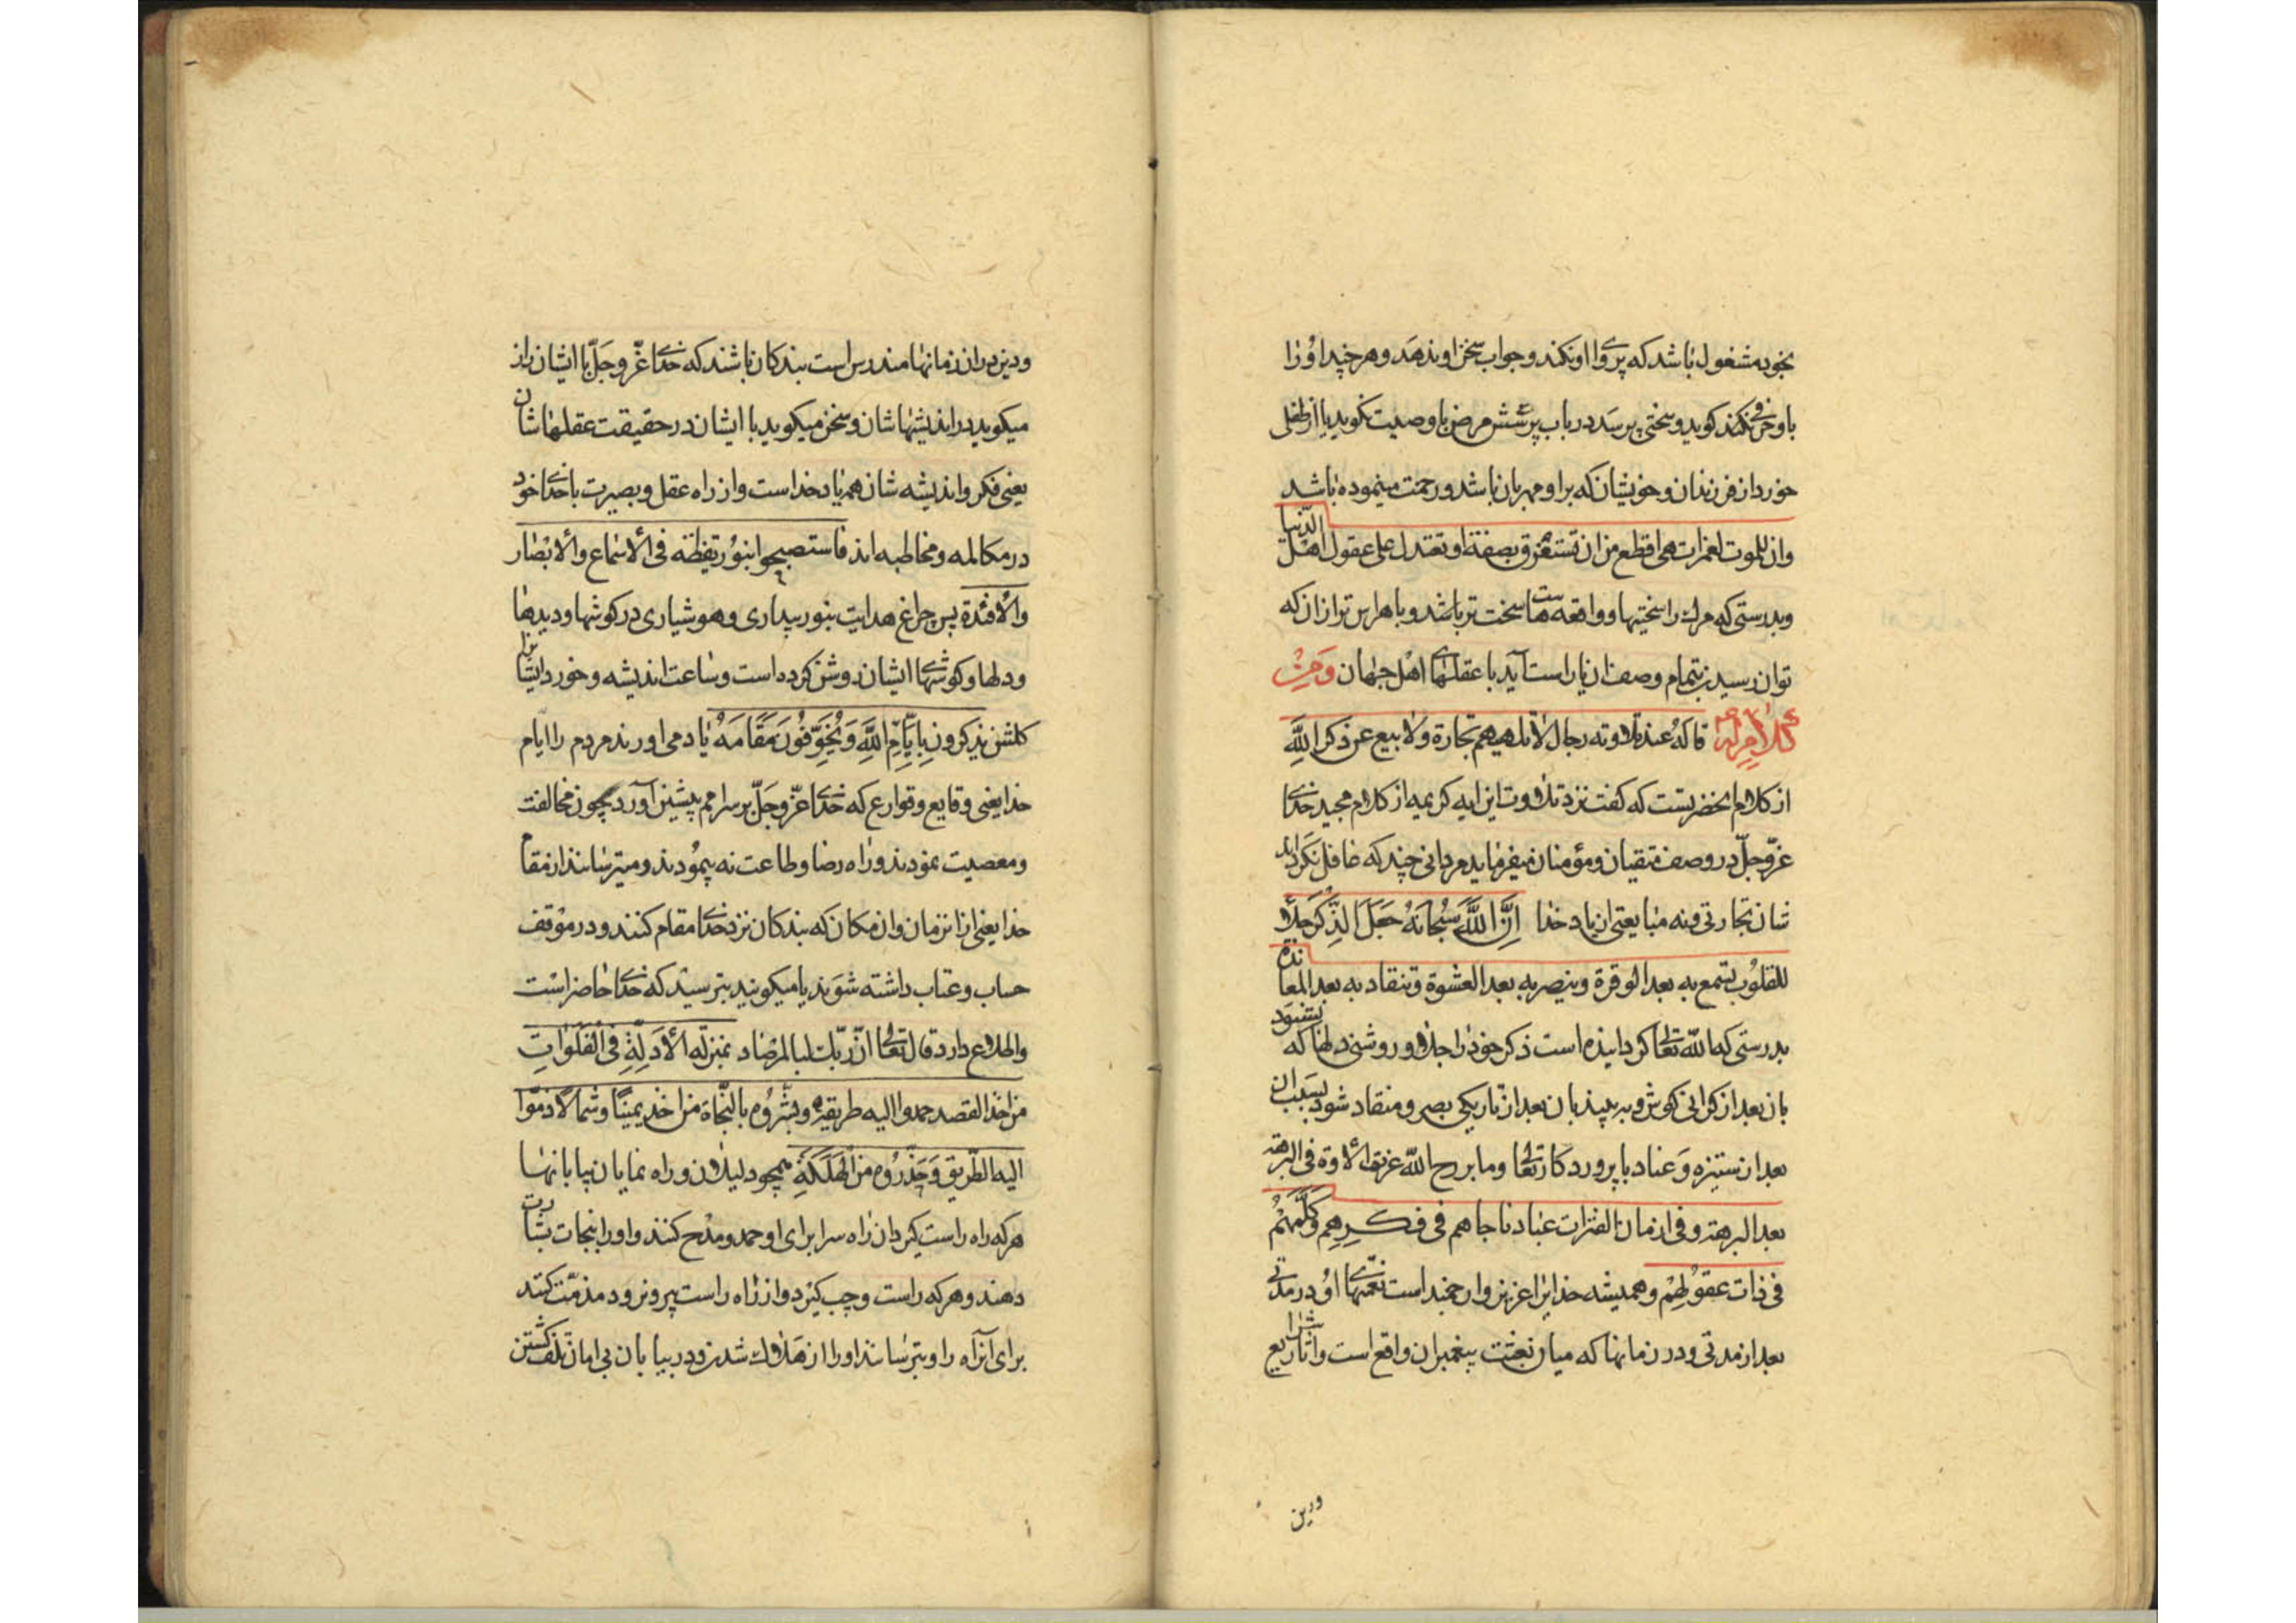 بخود مشغول باشد که پروای او نکند و جواب سخن او ندهد و هر چند او را
باو حرفی نکند کوید و سختی پرسد در باب پرسش مرض با وصیت نکوید یا از طفلی
خورد از فرزندان و خویشان که بر او مهربان باشد و رحمت مینموده باشد
وان للموت لغمرات هی افظع من ان تستغرق بصفة او تعتدل علی عقول اهل الدنیا
و بدرستی که مرک را سختیها و واقعه هاست سخت تر باشد و با هراس تر از ان که
توان رسیدن بتمام وصف ان یا راست آید با عقلهای اهل جهان ومن
کلام له ع قاله عند تلاوته رجال لا تلهیهم تجارة ولا بیع عن ذکر الله
از کلام آنحضرتست که کفت نزد تلاوت این ایه کریمه از کلام مجید خدای
عزوجل در وصف متقیان و مؤمنان میفرماید مردانی چند که غافل نکرداند
شان تجارتی و نه مبایعتی از یاد خدا إن الله سبحانه جعل الذکر جلاء
للقلوب تسمع به بعد الوقرة و تبصر به بعد العشوة و تنقاد به بعد المعاندة
بدرستی که الله تعالی کردانیده است ذکر خود را جلاء و روشنی دلها که بشنود
بان بعد از کرانی کوش و ببیند بان بعد از تاریکی بصر و منقاد شود بسبب ان
بعد از ستیزه و عناد با پروردکار تعالی وما برح الله عزت الاؤه فی البرهة
بعد البرهة و فی ازمان الفترات عباد ناجاهم فی فکرهم و کلمهم
فی ذات عقولهم و همیشه خدایرا عزیز و ارجمند است نعمتهای او در مدتی
بعد از مدتی و در زمانها که میان بعثت پیغمبران واقع است و اثار شرایع
ودین
ودین در ان زمانها مندرس است بندکان باشند که خدای عز و جل با ایشان راز
میکوید در اندیشهاشان و سخن میکوید با ایشان در حقیقت عقلهاشان
یعنی فکر و اندیشه شان همه یاد خداست و از راه عقل و بصیرت با خدای خود
در مکالمه و مخاطبه اند فاستصبحوا بنور یقظة فی الاسماع و الابصار
و الافئدة پس چراغ هدایت بنور بیداری و هوشیاری در کوشها و دیدها
و دلها و کوشهای ایشان روشن کرده است و ساعت اندیشه و خورد ایشانرا
کلشن یذکرون بایام الله و یخوفون مقامه یاد می اورند مردم را ایام
خدا یعنی وقایع و قوارع که خدای عز و جل بر سر امم پیشین آورد چون مخالفت
و معصیت نمودند و راه رضا و طاعت نه پیمودند و میترسانند از مقام
خدا یعنی از ان زمان و ان مکان که بندکان نزد خدای مقام کنند و در موقف
حساب و عتاب داشته شوند یا میکویند بترسید که خدای حاضر است
و اطلاع دارد قال تعالی ان ربک لبالمرصاد بمنزلة الادلة فی الفلوات
من اخذ القصد حمدوا الیه طریقه و بشروه بالنجاة من اخذ یمینا و شمالا ذموا
الیه الطریق و حذروه من الهلکة همچو دلیلان و راه نمایان بیابانها
هر که راه راست کیرد ان راه سرا برای او حمد و مدح کنند و او را بنجات بشارت
دهند و هر که راست و چپ کیرد و از راه راست بیرون رود مذمت کنند
برای آن راه را و بترسانند او را از هلاک شدن و در بیابان بی امان تلف کشتن